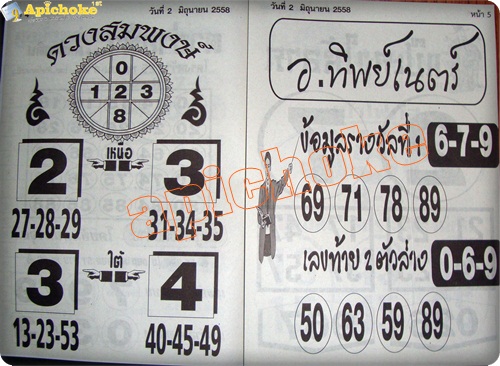 Apichoke
วันที่ 2 มิถุนายน 2558
ดวงสมพงษ์
0
1 2 3
8
เหนือ
2 3
27-28-29 31-34-35
ใต้
3 4
13-23-53 40-45-49
วันที่ 2 มิถุนายน 2558 หน้า 5
อ.ทิพย์เนตร์
ข้อมูลรางวัลที่ 1 6-7-9
69 71 78 89
เลขท้าย 2 ตัวล่าง 0-6-9
50 63 59 89
apichoke